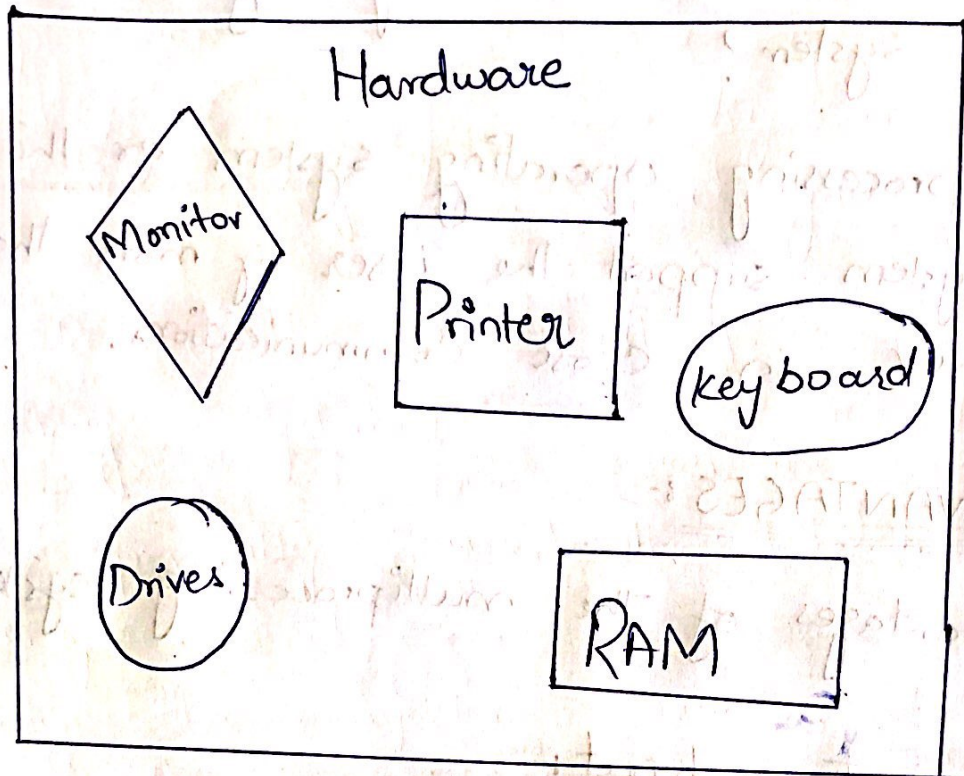 Hardware
Monitor
Printer
keyboard
Drives
RAM